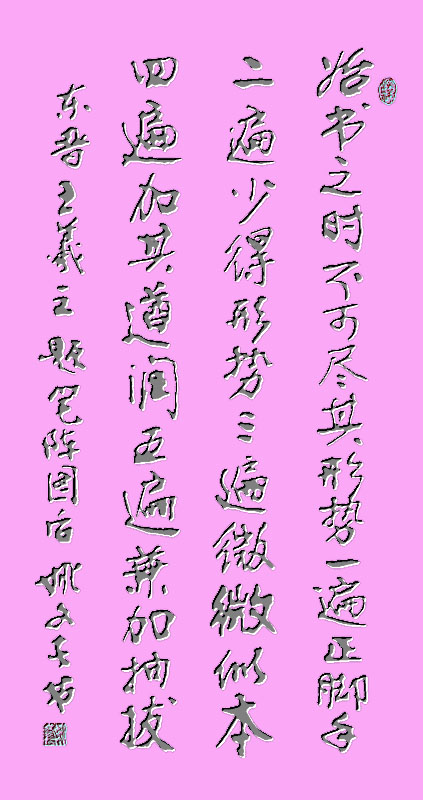 始书之时不可尽其形势一遍正脚手
二遍少得形势三遍微微似本
四遍加其遒润五遍兼加抽拔
东晋王羲之题笔阵图后 姚文长书